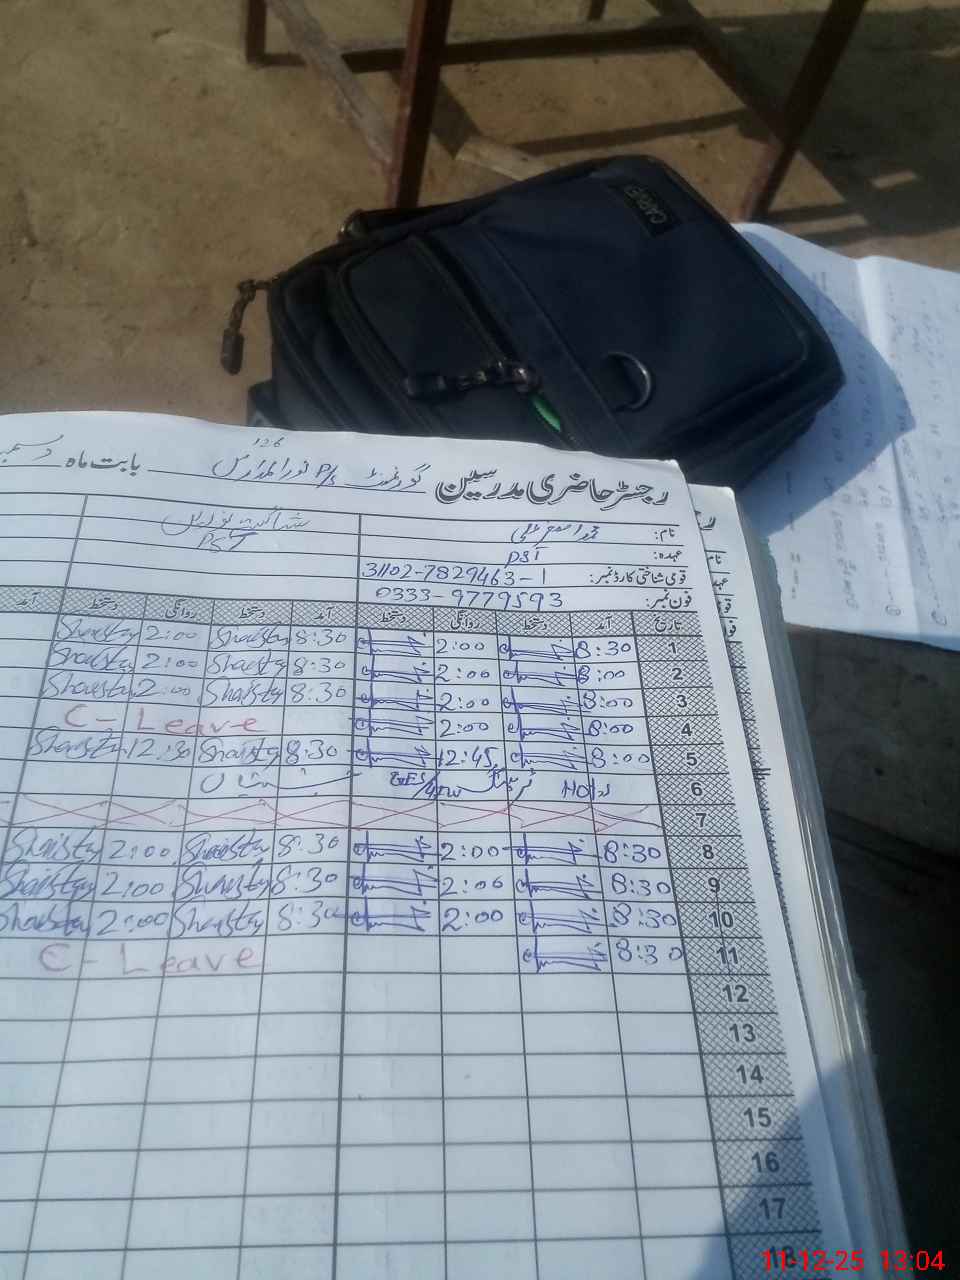 CARRIER
126
رجسٹر حاضری مدرسین گورنمنٹ P/s بابت ماہ دسمبر
نام: محمد اصغر علی
عہدہ: PST PST
قومی شناختی کارڈ نمبر: 31102-7829463-1
فون نمبر: 0333-9779593
تاریخ آمد دستخط روانگی دستخط آمد دستخط روانگی دستخط آمد
1 8:30 2:00 8:30 Shaista 2:00 Shaista
2 8:00 2:00 8:30 Shaista 2:00 Shaista
3 8:00 2:00 8:30 Shaista 2:00 Shaista
4 8:00 2:00 C - Leave
5 8:00 12:45 8:30 Shaista 12:30 Shaista
6
7
8 8:30 2:00 8:30 Shaista 2:00 Shaista
9 8:30 2:00 8:30 Shaista 2:00 Shaista
10 8:30 2:00 8:30 Shaista 2:00 Shaista
11 8:30 C - Leave
12
13
14
15
16
17
18
11-12-25 13:04